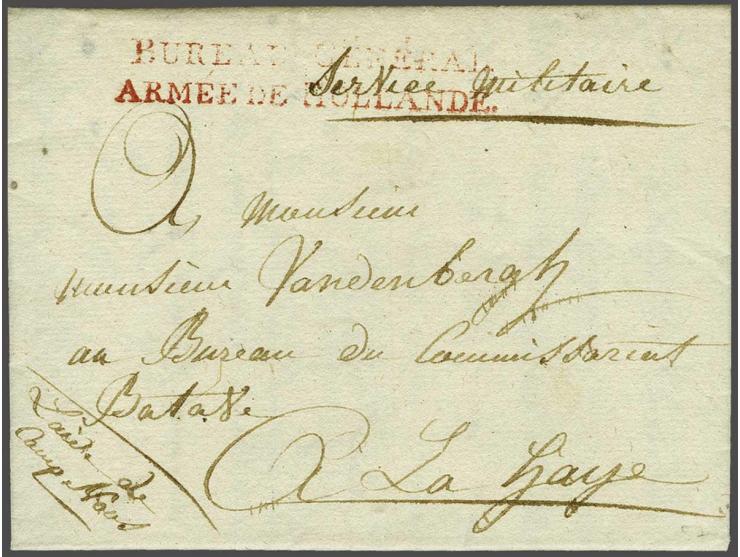 BUREAU GÉNÉRAL
ARMÉE DE HOLLANDE.
Service Militaire
A, Monsieur
monsieur Vandenbergh
au Bureau du Commissariat
Batave
A La Haye
L'aide de
Camp